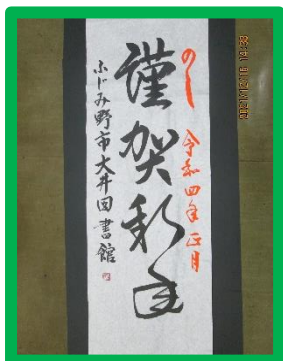 のし 令和四年正月
謹賀新年
ふじみ野市大井図書館